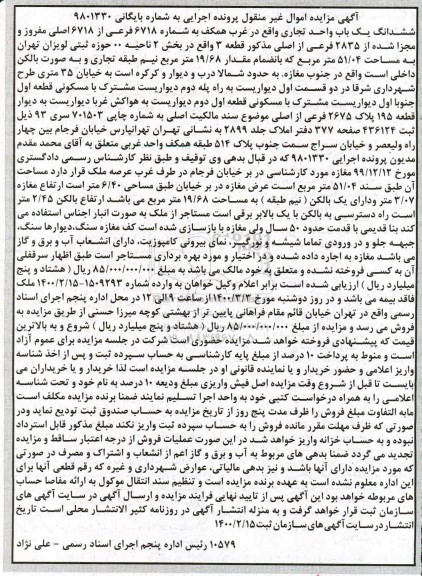 آگهی مزایده اموال غیر منقول پرونده اجرایی به شماره بایگانی ۹۸۰۱۳۳۰
ششدانگ یک باب واحد تجاری واقع در غرب همکف به شماره ۶۷۱۸ فرعی از ۶۷۱۸ اصلی مفروز و
مجزا شده از ۲۸۳۵ فرعی از اصلی مذکور قطعه ۳ واقع در بخش ۲ ناحیه ۰۰ حوزه ثبتی لویزان تهران
به مساحت ۵۱/۰۴ متر مربع که بانضمام مقدار ۱۹/۶۸ متر مربع نیم طبقه تجاری و به صورت بالکن
داخلی است واقع در جنوب مغازه. به حدود شمالا درب و دیوار و کرکره است به خیابان ۳۵ متری طرح
شهرداری شرقا در دو قسمت اول دیواریست به راه پله دوم دیواریست مشترک با مسکونی قطعه اول
جنوبا اول دیواریست مشترک با مسکونی قطعه اول دوم دیواریست به هواکش غربا دیواریست به دیوار
قطعه ۱۹۵ پلاک ۲۶۷۵ فرعی از اصلی موضوع سند مالکیت اصلی به شماره چاپی ۷۰۱۵۰۳ سری ۹۳ ذیل
ثبت ۴۳۶۱۲۴ صفحه ۳۷۷ دفتر املاک جلد ۲۸۹۹ به نشانی تهران تهرانپارس خیابان فرجام بین چهار
راه ولیعصر و خیابان سراج سمت جنوب پلاک ۵۱۴ طبقه همکف واحد غربی متعلق به آقای محمد مقدم
مدیون پرونده اجرایی ۹۸۰۱۳۳۰ که در قبال بدهی وی توقیف و طبق نظر کارشناس رسمی دادگستری
مورخ ۹۹/۱۲/۱۲ مغازه مورد کارشناسی در بر خیابان فرجام در طرف غرب عرصه ملک قرار دارد مساحت
آن طبق سند ۵۱/۰۴ متر مربع است عرض مغازه در بر خیابان طبق مساحی ۶/۴۰ متر است ارتفاع مغازه
۳/۰۷ متر ودارای یک بالکن ( نیم طبقه ) به مساحت ۱۹/۶۸ متر مربع می باشد ارتفاع بالکن ۲/۴۵ متر
است راه دسترسی به بالکن با یک بالابر برقی است مستاجر از ملک به صورت انبار اجناس استفاده می
کند بنا قدیمی با قدمت حدود ۵۰ سال ولی مغازه با بازسازی شده است کف مغازه سنگ،دیوارها سنگ،
جبهه جلو و در ورودی تماما شیشه و نورگیر. نمای بیرونی کامپوزیت، دارای انشعاب آب و برق و گاز
می باشد مغازه به اجاره داده شده و در اختیار و مورد بهره برداری مستاجر است طبق اظهار سرقفلی
آن به کسی فروخته نشده و متعلق به خود مالک می باشد به مبلغ ۸۵/۰۰۰/۰۰۰/۰۰۰ ریال ( هشتاد و پنج
میلیارد ریال ) ارزیابی شده است برابر اعلام وکیل خواهان به وارده شماره ۱۵۰۹۲۹۳-۱۴۰۰/۲/۱۵ ملک
فاقد بیمه می باشد و در روز دوشنبه مورخ ۱۴۰۰/۳/۳از ساعت ۹ الی ۱۲ در محل اداره پنجم اجرای اسناد
رسمی واقع در تهران خیابان قائم مقام فراهانی پایین تر از بهشتی کوچه میرزا حسنی از طریق مزایده به
فروش می رسد و مزایده از مبلغ ۸۵/۰۰۰/۰۰۰/۰۰۰ ریال ( هشتاد و پنج میلیارد ریال ) شروع و به بالاترین
قیمت که پیشنهادی فروخته خواهد شد.مزایده حضوری است شرکت در جلسه مزایده برای عموم آزاد
است و منوط به پرداخت ۱۰ درصد از مبلغ پایه کارشناسی به حساب سپرده ثبت و پس از اخذ شناسه
واریز اعلامی و حضور خریدار و یا نماینده قانونی او در جلسه مزایده است لذا خریدار و یا خریداران می
بایست تا قبل از شروع وقت مزایده اصل فیش واریزی مبلغ ودیعه ۱۰ درصد به نام خود و تحت شناسه
اعلامی را به همراه درخواست کتبی خود به واحد اجرا تسلیم نمایند ضمنا برنده مزایده مکلف است
مابه التفاوت مبلغ فروش را ظرف مدت پنج روز از تاریخ مزایده به حساب صندوق ثبت تودیع نماید ودر
صورتی که ظرف مهلت مقرر مانده فروش را به حساب سپرده ثبت واریز نکند مبلغ مذکور قابل استرداد
نبوده و به حساب خزانه واریز خواهد شد در این صورت عملیات فروش از درجه اعتبار ساقط و مزایده
تجدید می گردد ضمنا بدهی های مربوط به آب و برق و گاز اعم از انشعاب و اشتراک و مصرف در صورتی
که مورد مزایده دارای آنها باشد و نیز بدهی مالیاتی، عوارض شهرداری و غیره که رقم قطعی آنها برای
این اداره معلوم نشده است به عهده برنده مزایده است و تنظیم سند انتقال موکول به ارائه مفاصا حساب
های مربوطه خواهد بود این آگهی پس از تایید نهایی فرایند مزایده و ارسال آگهی در سایت آگهی های
سازمان ثبت قرار خواهد گرفت و به منزله انتشار آگهی در روزنامه کثیر الانتشار محلی است تاریخ
انتشار در سایت آگهی های سازمان ثبت ۱۴۰۰/۲/۱۵
۱۰۵۷۹ رئیس اداره پنجم اجرای اسناد رسمی - علی نژاد